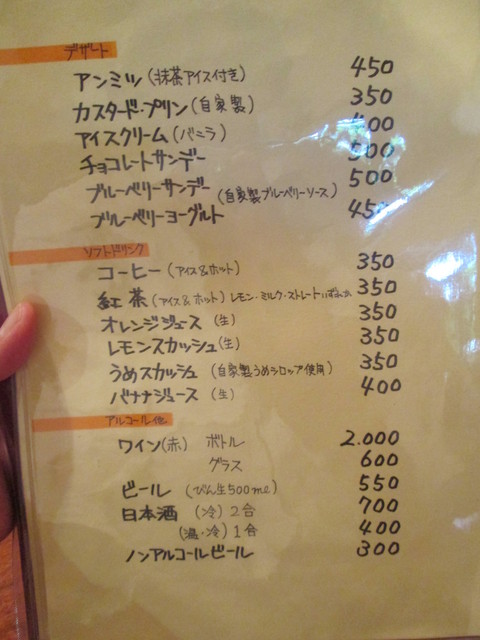 デザート
アンミツ(抹茶アイス付き) 450
カスタードプリン(自家製) 350
アイスクリーム(バニラ) 400
チョコレートサンデー 500
ブルーベリーサンデー (自家製ブルーベリーソース) 500
ブルーベリーヨーグルト 450
ソフトドリンク
コーヒー (アイス&ホット) 350
紅茶(アイス&ホット) レモン・ミルク・ストレートいずれか 350
オレンジジュース (生) 350
レモンスカッシュ(生) 350
うめスカッシュ (自家製うめシロップ使用) 350
バナナジュース (生) 400
アルコール他
ワイン(赤) ボトル 2.000
グラス 600
ビール (びん生500ml) 550
日本酒 (冷) 2合 700
(温・冷) 1合 400
ノンアルコールビール 300